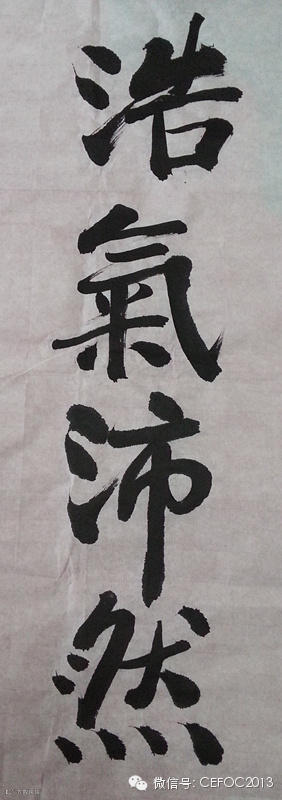 浩氣沛然
微信号: CEFOC2013